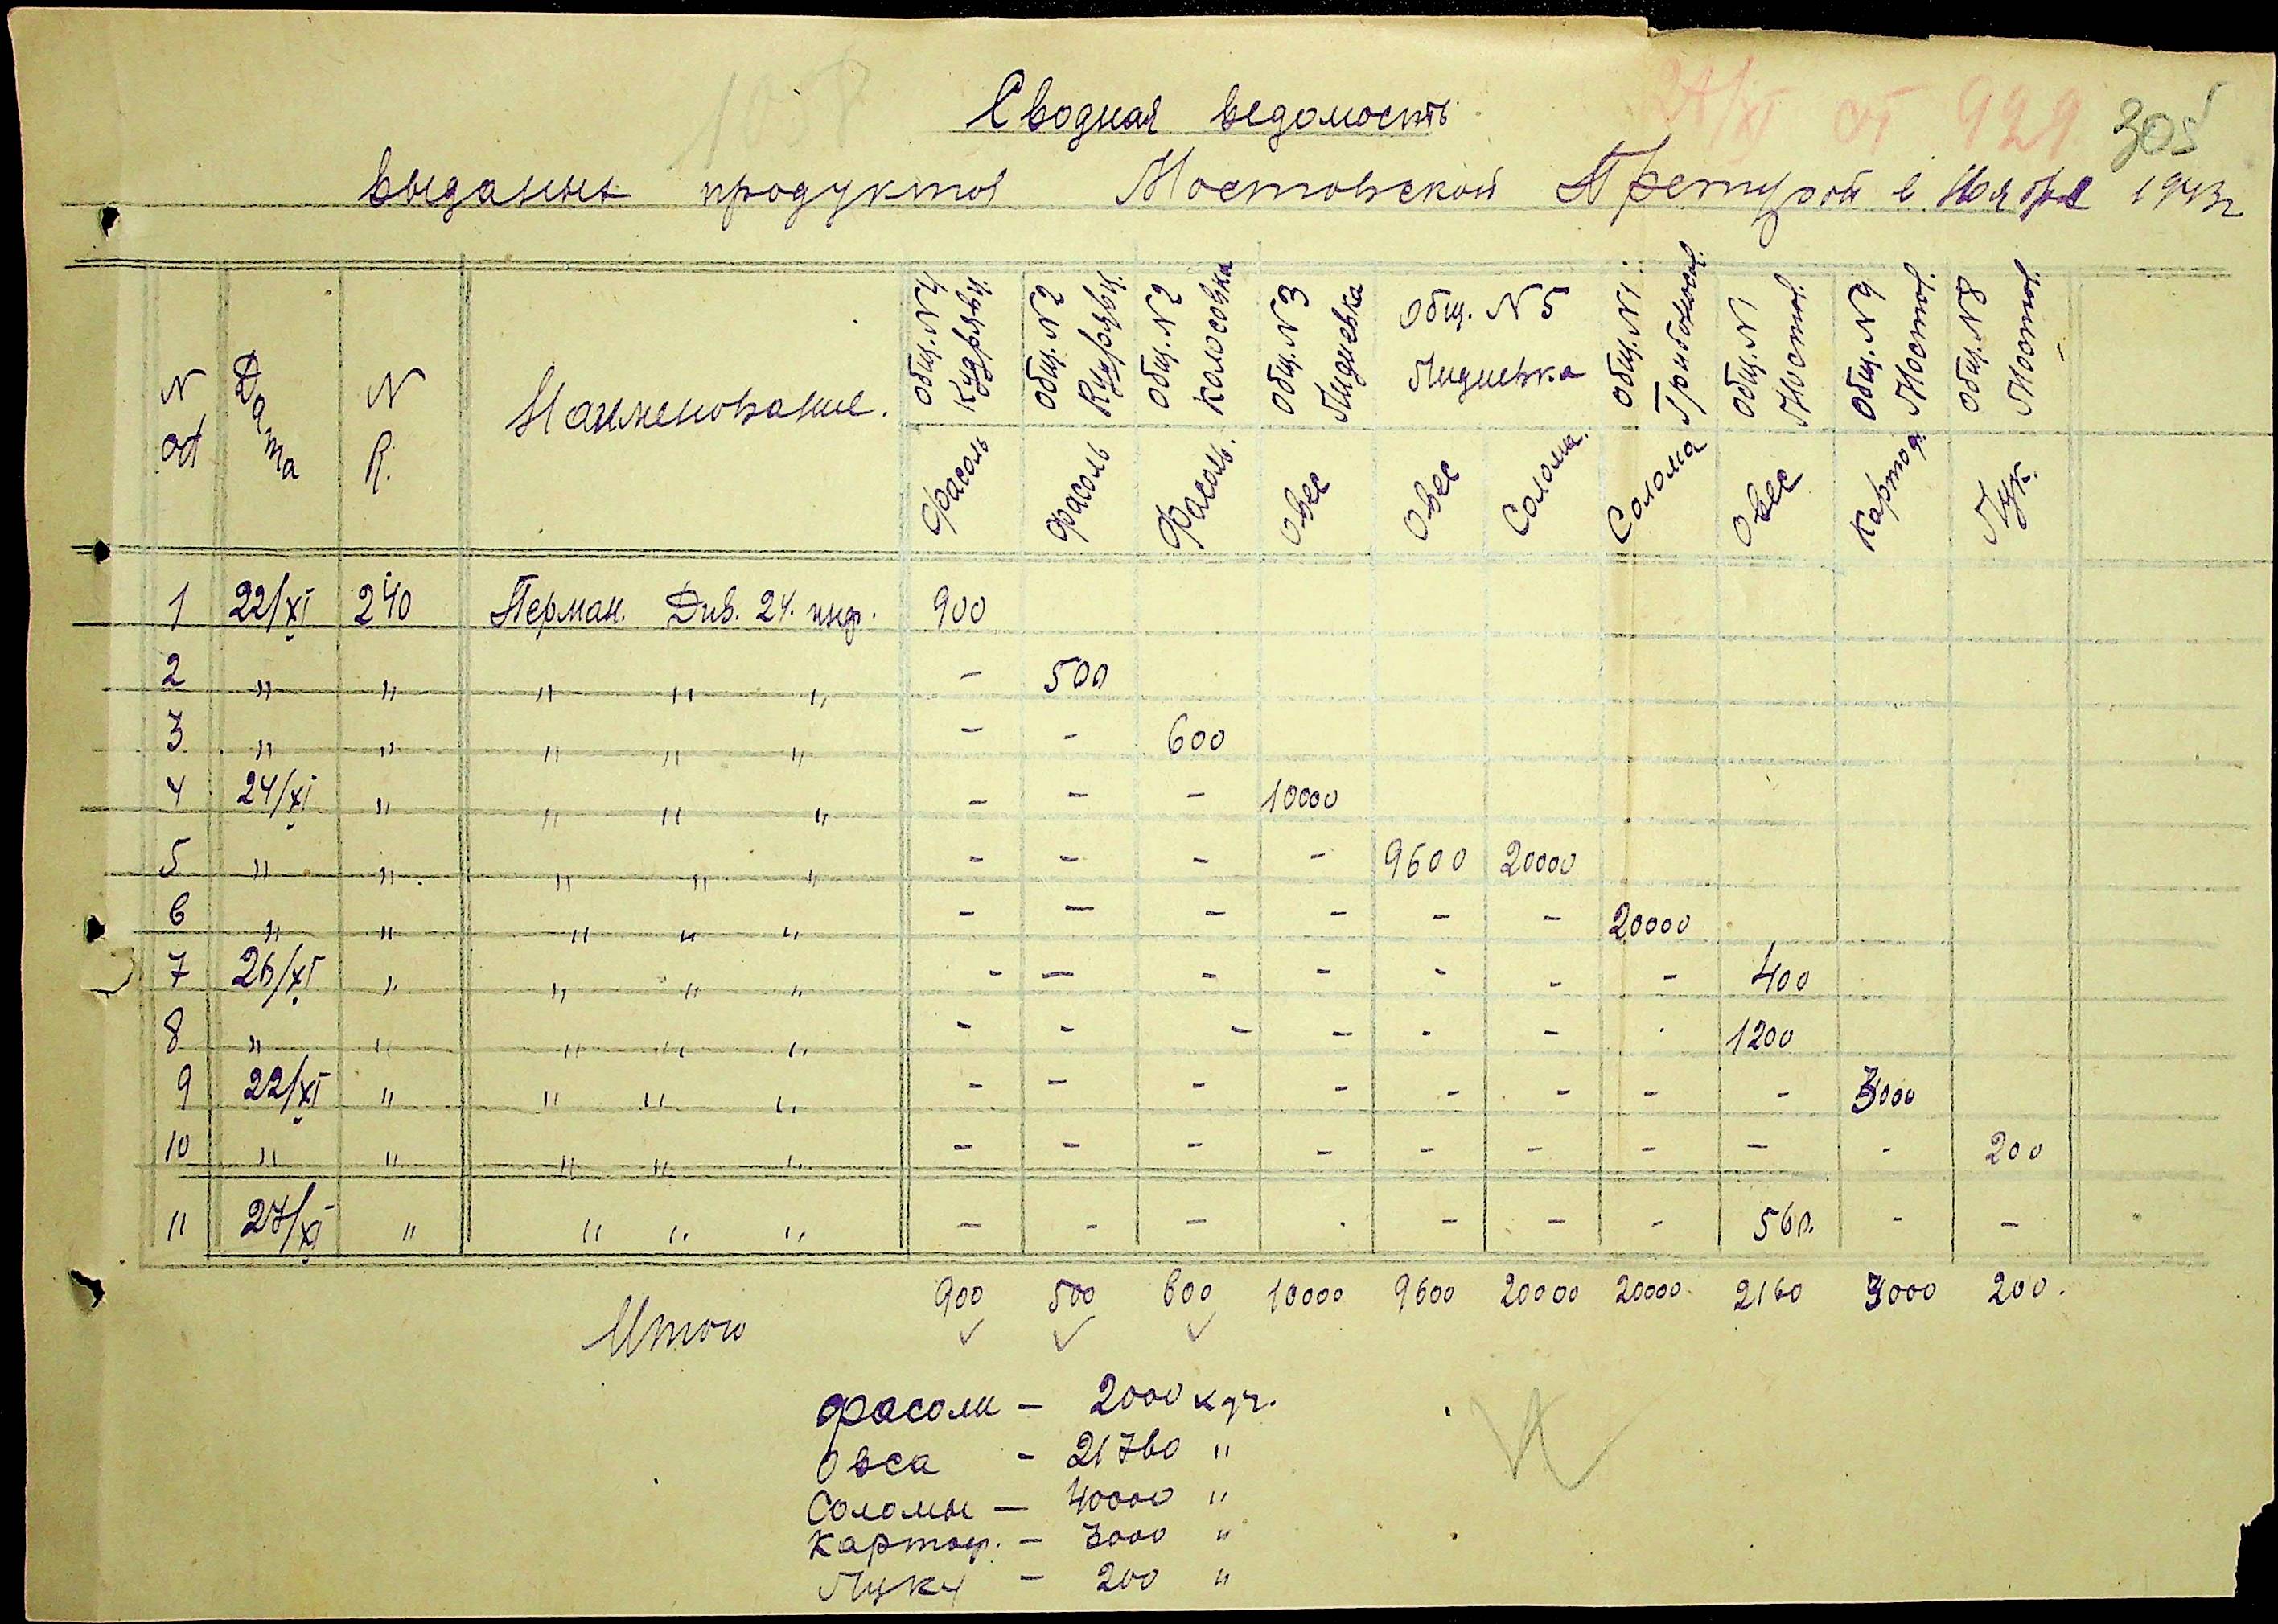 1008
Сводная ведомость
27/XI 929
305
выданных продуктов Мостовской Претурой в Ноябре 1943 г
N od
Дата
N R.
Наименование.
Общ. N 4 Кудрявц.
Общ. N 2 Кудрявц.
Общ. N 2 Колосовка
Общ. N 3 Лидиевка
Общ. N 5 Лидиевка
Общ. N 1 Грибоносов.
Общ. N 1 Мостов.
Общ. N 9 Мостов.
Общ. N 8 Мостов.
фасоль фасоль фасоль. Овес Овес Солома. Солома Овес Картоф. Лук.
1 22/XI 240 Герман. Див. 24. инф. 900
2 " " " " " - 500
3 " " " " " - - 600
4 24/XI " " " " - - - 10000
5 " " " " " - - - - 9600 20000
6 " " " " " - - - - - - 20000
7 26/XI " " " " - - - - - - - 400
8 " " " " " - - - - - - - 1200
9 22/XI " " " " - - - - - - - - 3000
10 " " " " " - - - - - - - - - 200
11 27/XI " " " " - - - - - - - 560. - -
Итого 900 500 600 10000 9600 20000 20000 2160 3000 200.
фасоли - 2000 кгр.
Овса - 21760 "
Соломы - 40000 "
Картоф. - 3000 "
Луку - 200 "